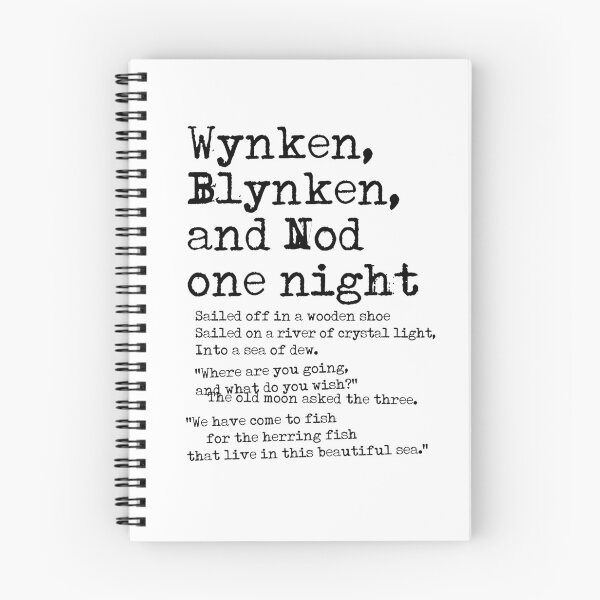 Wynken,
Blynken,
and Nod
one night
Sailed off in a wooden shoe
Sailed on a river of crystal light,
Into a sea of dew.
"Where are you going,
and what do you wish?"
The old moon asked the three.
"We have come to fish
for the herring fish
that live in this beautiful sea."